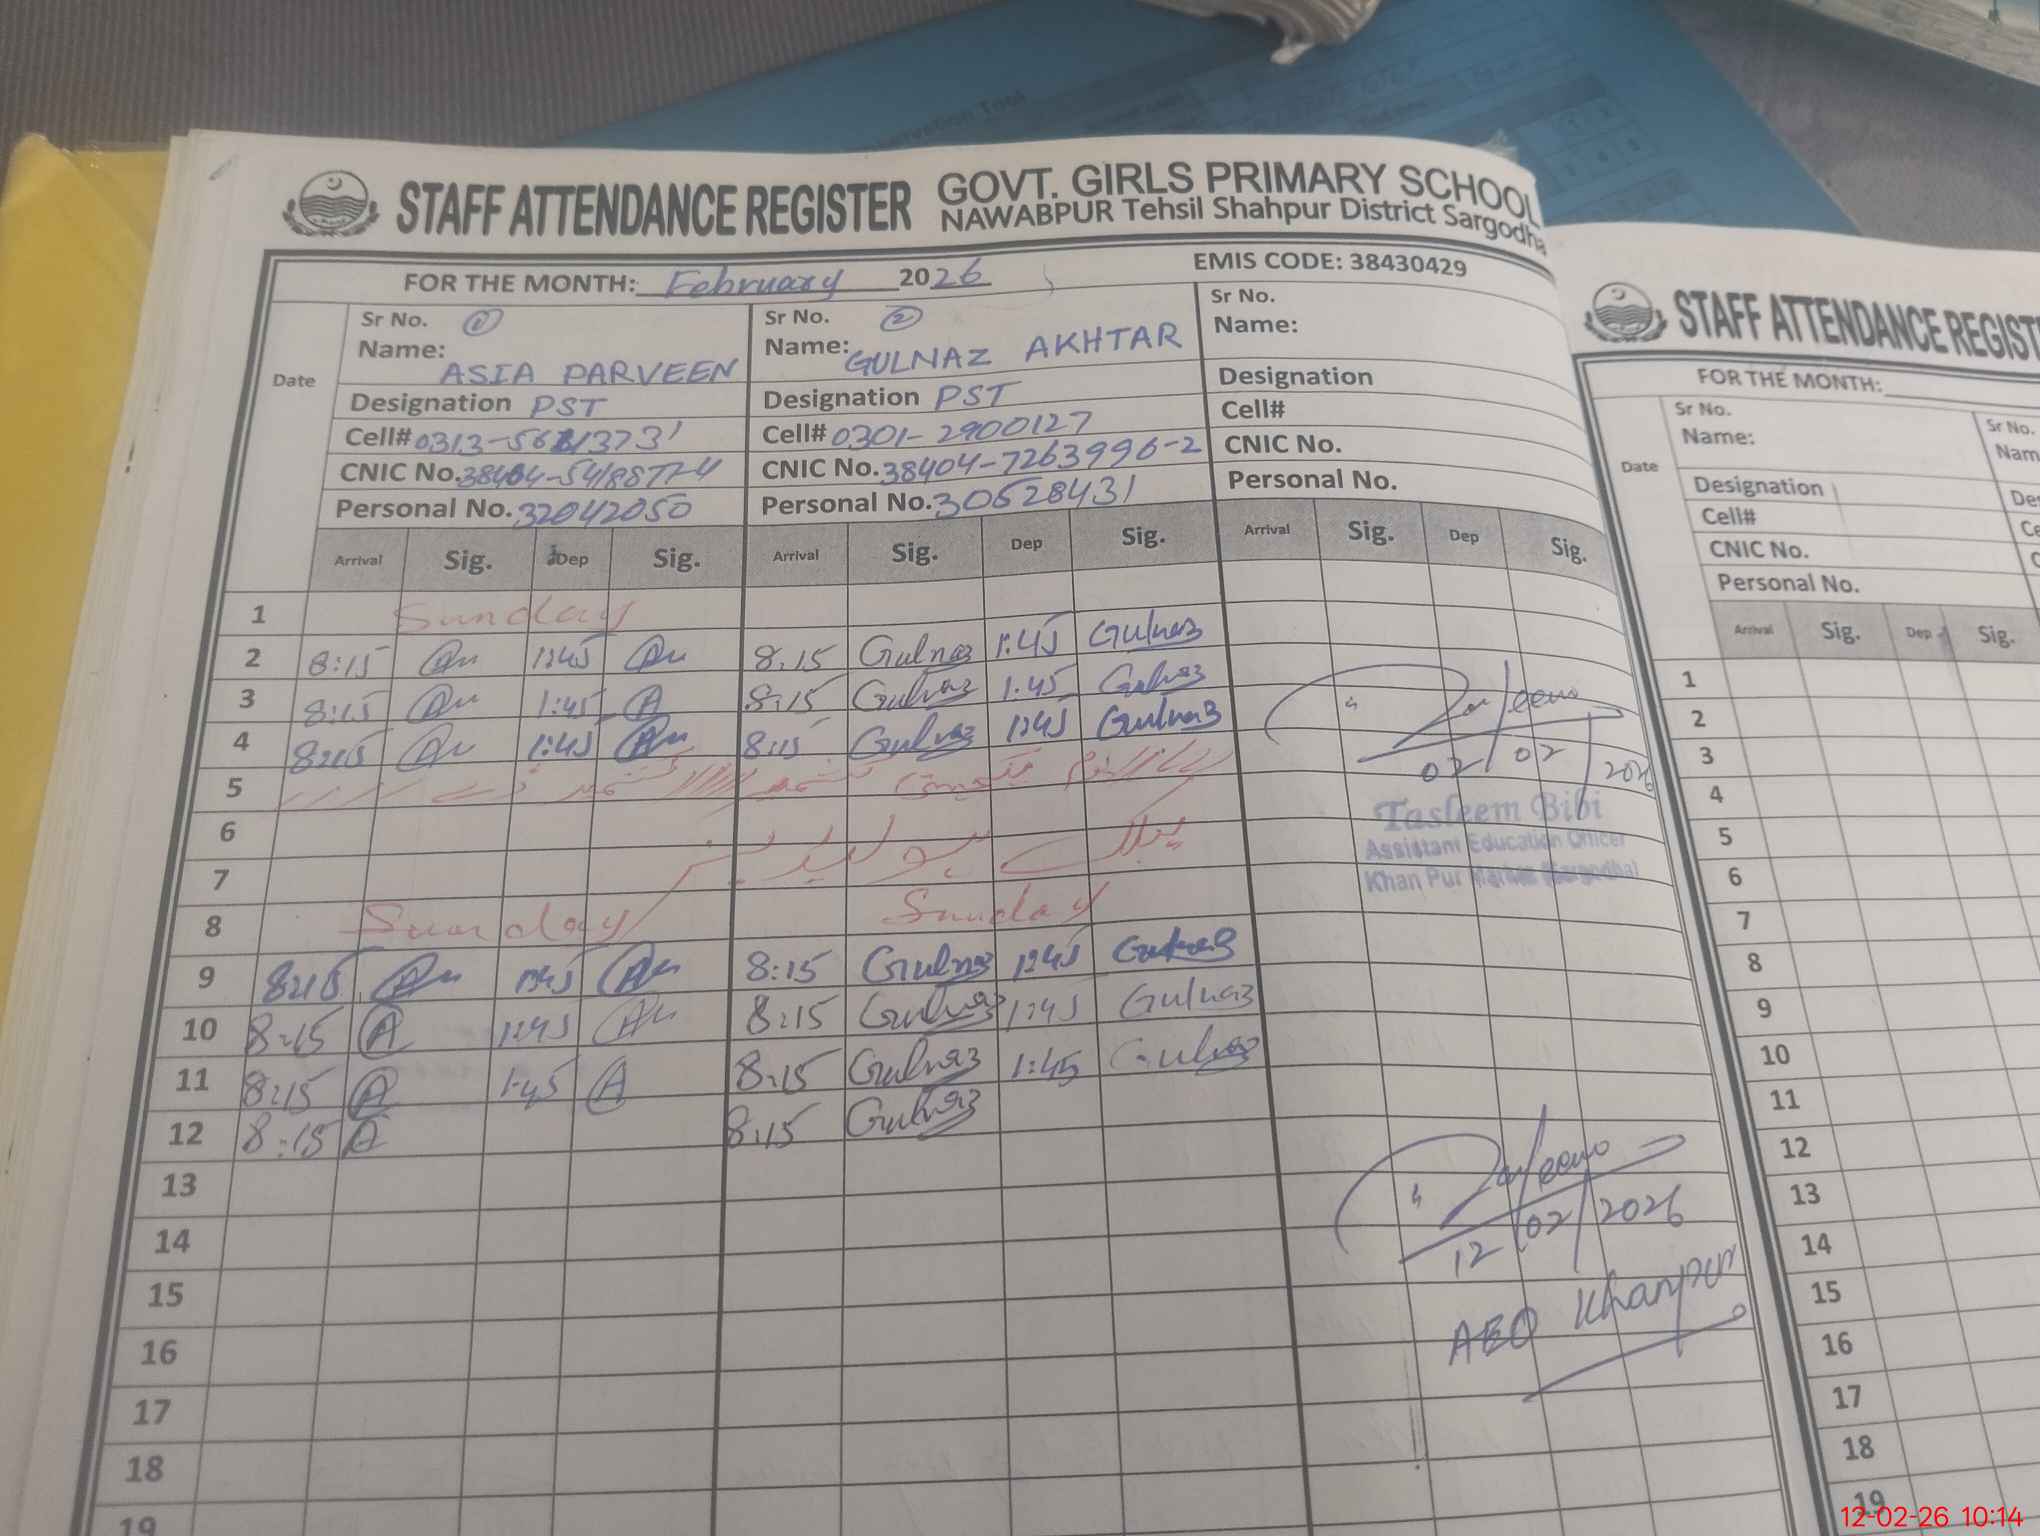 STAFF ATTENDANCE REGISTER GOVT. GIRLS PRIMARY SCHOOL
NAWABPUR Tehsil Shahpur District Sargodha
FOR THE MONTH: February 2026 EMIS CODE: 38430429
Date
Sr No. 1
Name: ASIA PARVEEN
Designation PST
Cell# 0313-
CNIC No.
Personal No. 32042050
Sr No. 2
Name: GULNAZ AKHTAR
Designation PST
Cell# 0301-2900127
CNIC No. 38404-7263996-2
Personal No. 30528431
Sr No.
Name:
Designation
Cell#
CNIC No.
Personal No.
Arrival Sig. Dep Sig. Arrival Sig. Dep Sig. Arrival Sig. Dep Sig.
1 Sunday
2 8:15 1:45 8:15 Gulnaz 1:45 Gulnaz
3 8:15 1:45 8:15 Gulnaz 1:45 Gulnaz
4 8:15 1:45 8:15 Gulnaz 1:45 Gulnaz
02/02/2026
5
Tasleem Bibi
Assistant Education Officer
Khan Pur
6
7
8 Sunday Sunday
9 8:15 1:45 8:15 Gulnaz 1:45 Gulnaz
10 8:15 A 1:45 8:15 Gulnaz 1:45 Gulnaz
11 8:15 A 1:45 A 8:15 Gulnaz 1:45 Gulnaz
12 8:15 A 8:15 Gulnaz
13
12/02/2026
14
AEO Khanpur
15
16
17
18
19
STAFF ATTENDANCE REGIST
FOR THE MONTH:
Date
Sr No.
Name:
Designation
Cell#
CNIC No.
Personal No.
Sr No.
Nam
Arrival Sig. Dep Sig.
1
2
3
4
5
6
7
8
9
10
11
12
13
14
15
16
17
18
19
12-02-26 10:14